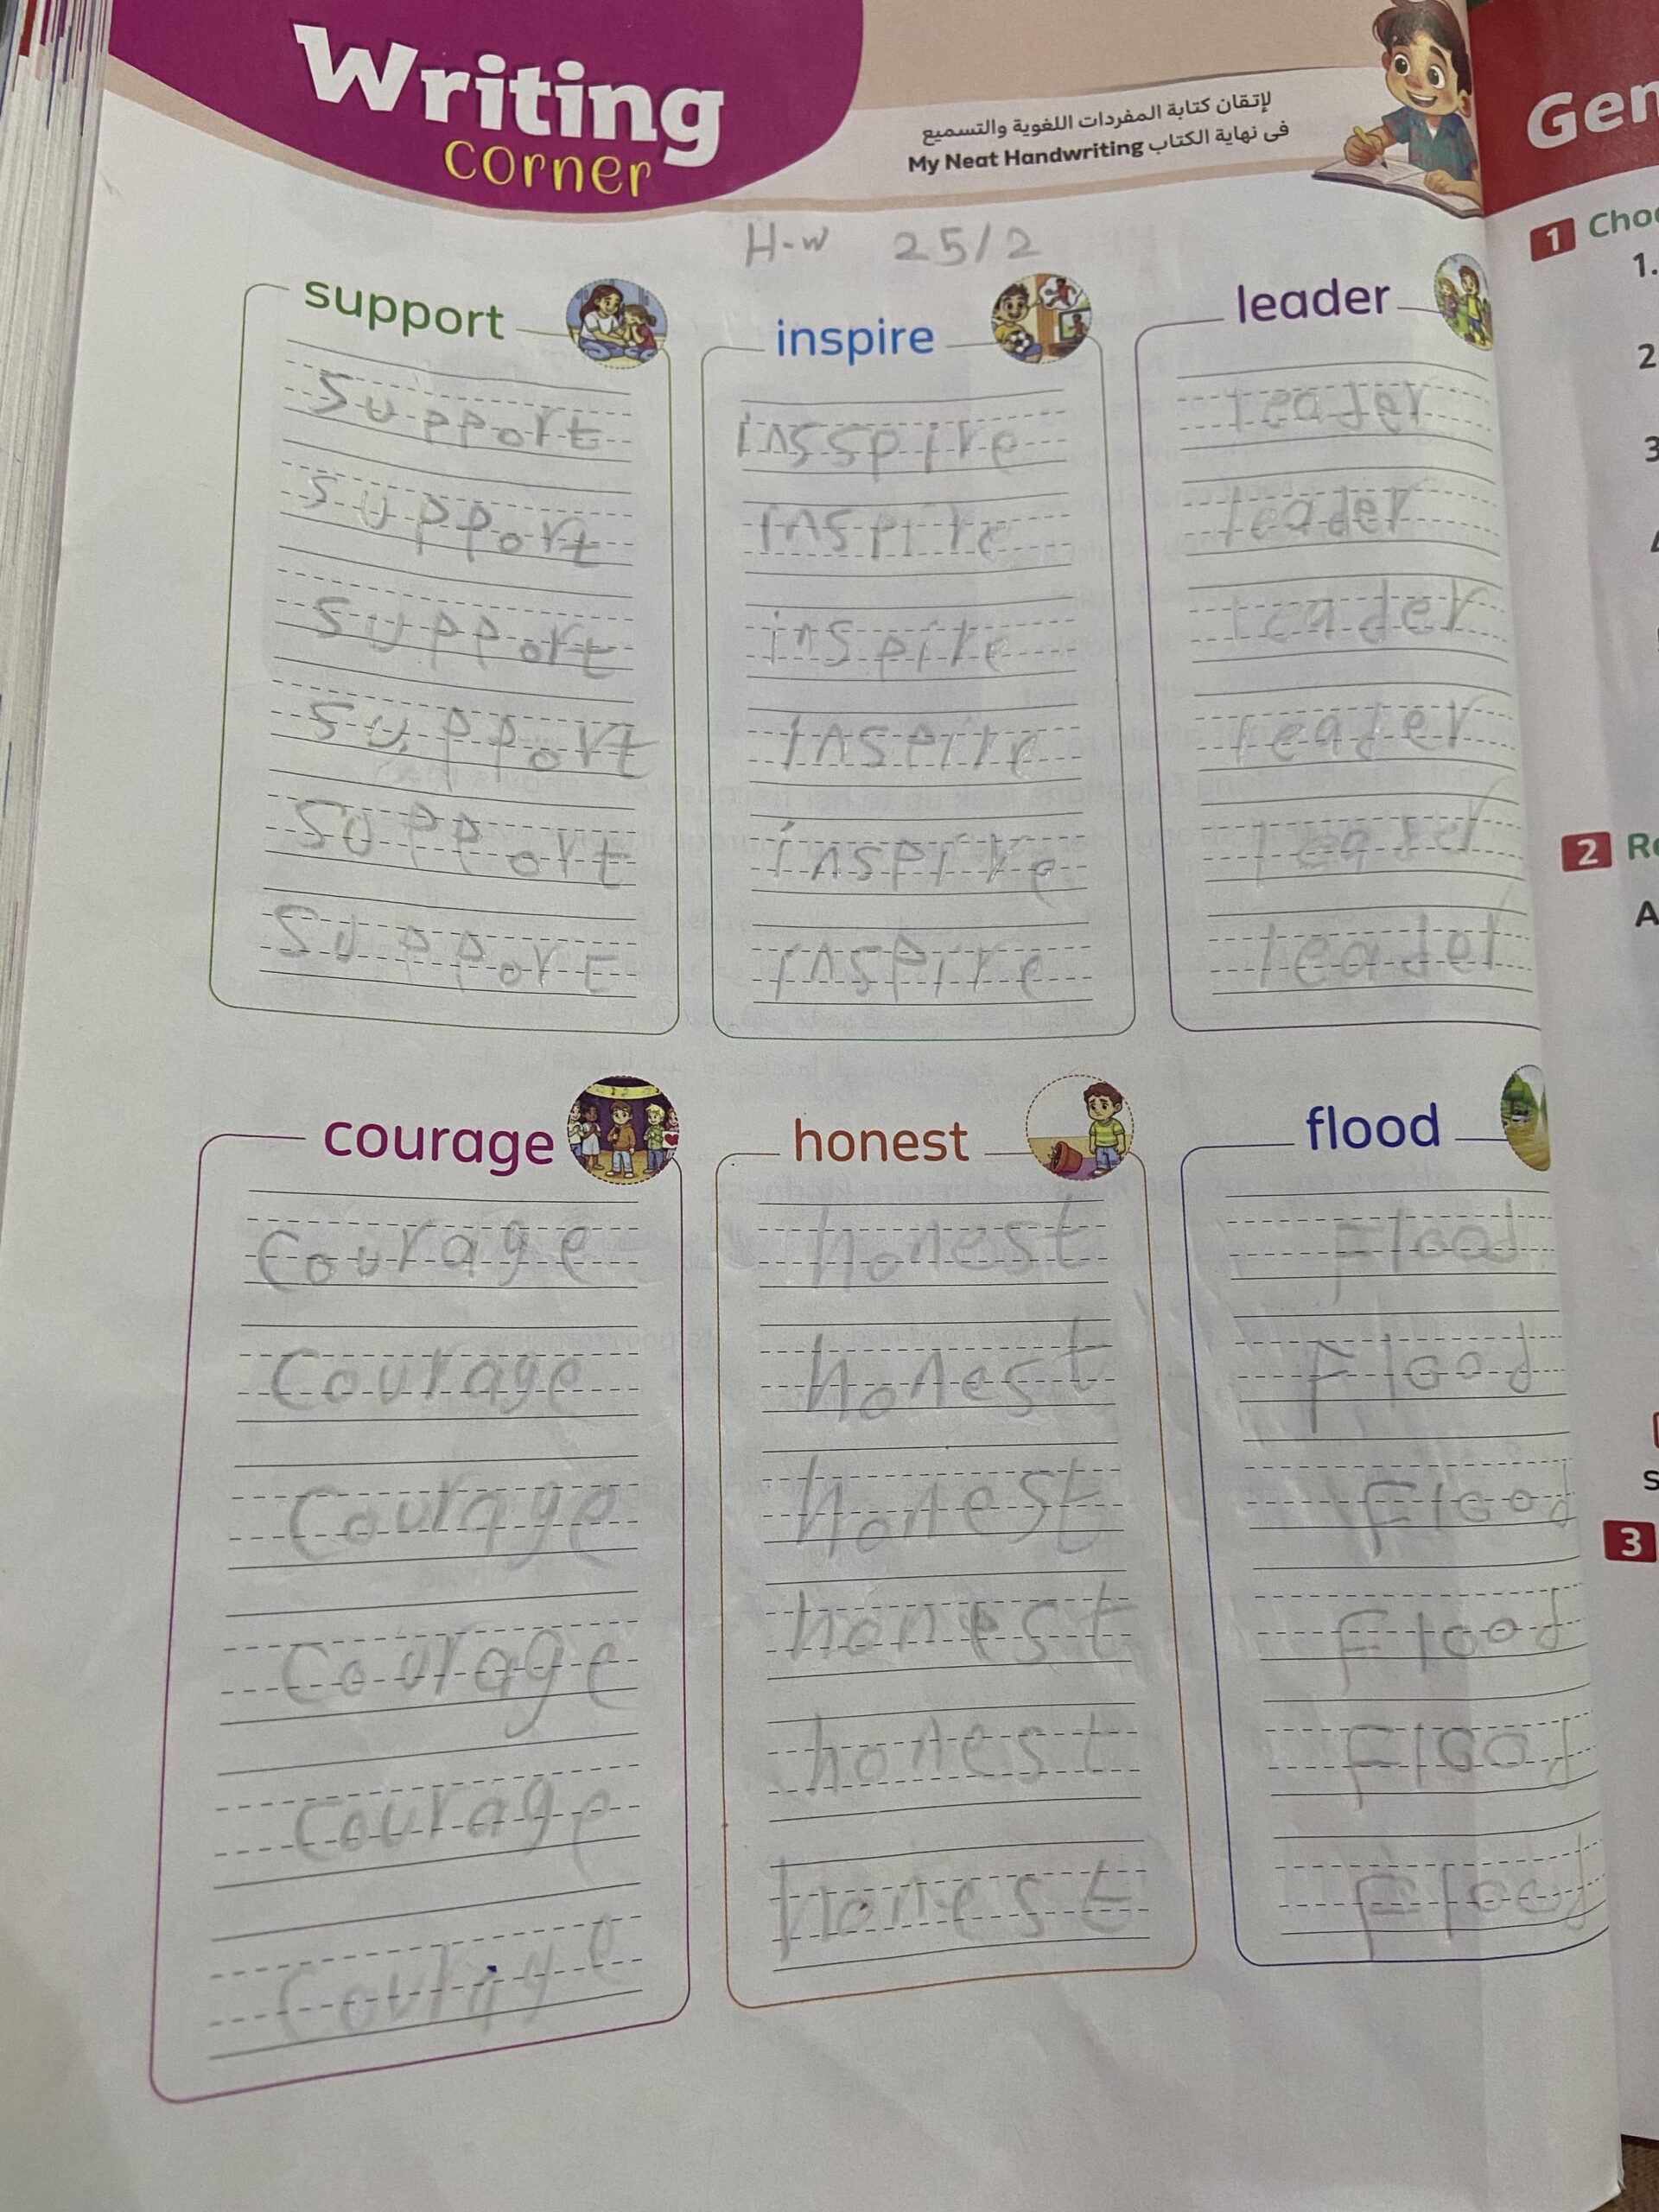 Writing
corner
لإتقان كتابة المفردات اللغوية والتسميع
فى نهاية الكتاب My Neat Handwriting
H-w 25/2
support
support
support
support
support
support
support
inspire
insspire
inspire
inspire
inspire
inspire
inspire
leader
leader
leader
leader
leader
leader
leader
courage
courage
courage
courage
courage
courage
courage
honest
honest
honest
honest
honest
honest
honest
flood
Flood
Flood
Flood
Flood
Flood
Flood
Gen
1 Choo
1.
2
3
2 Re
A
s
3